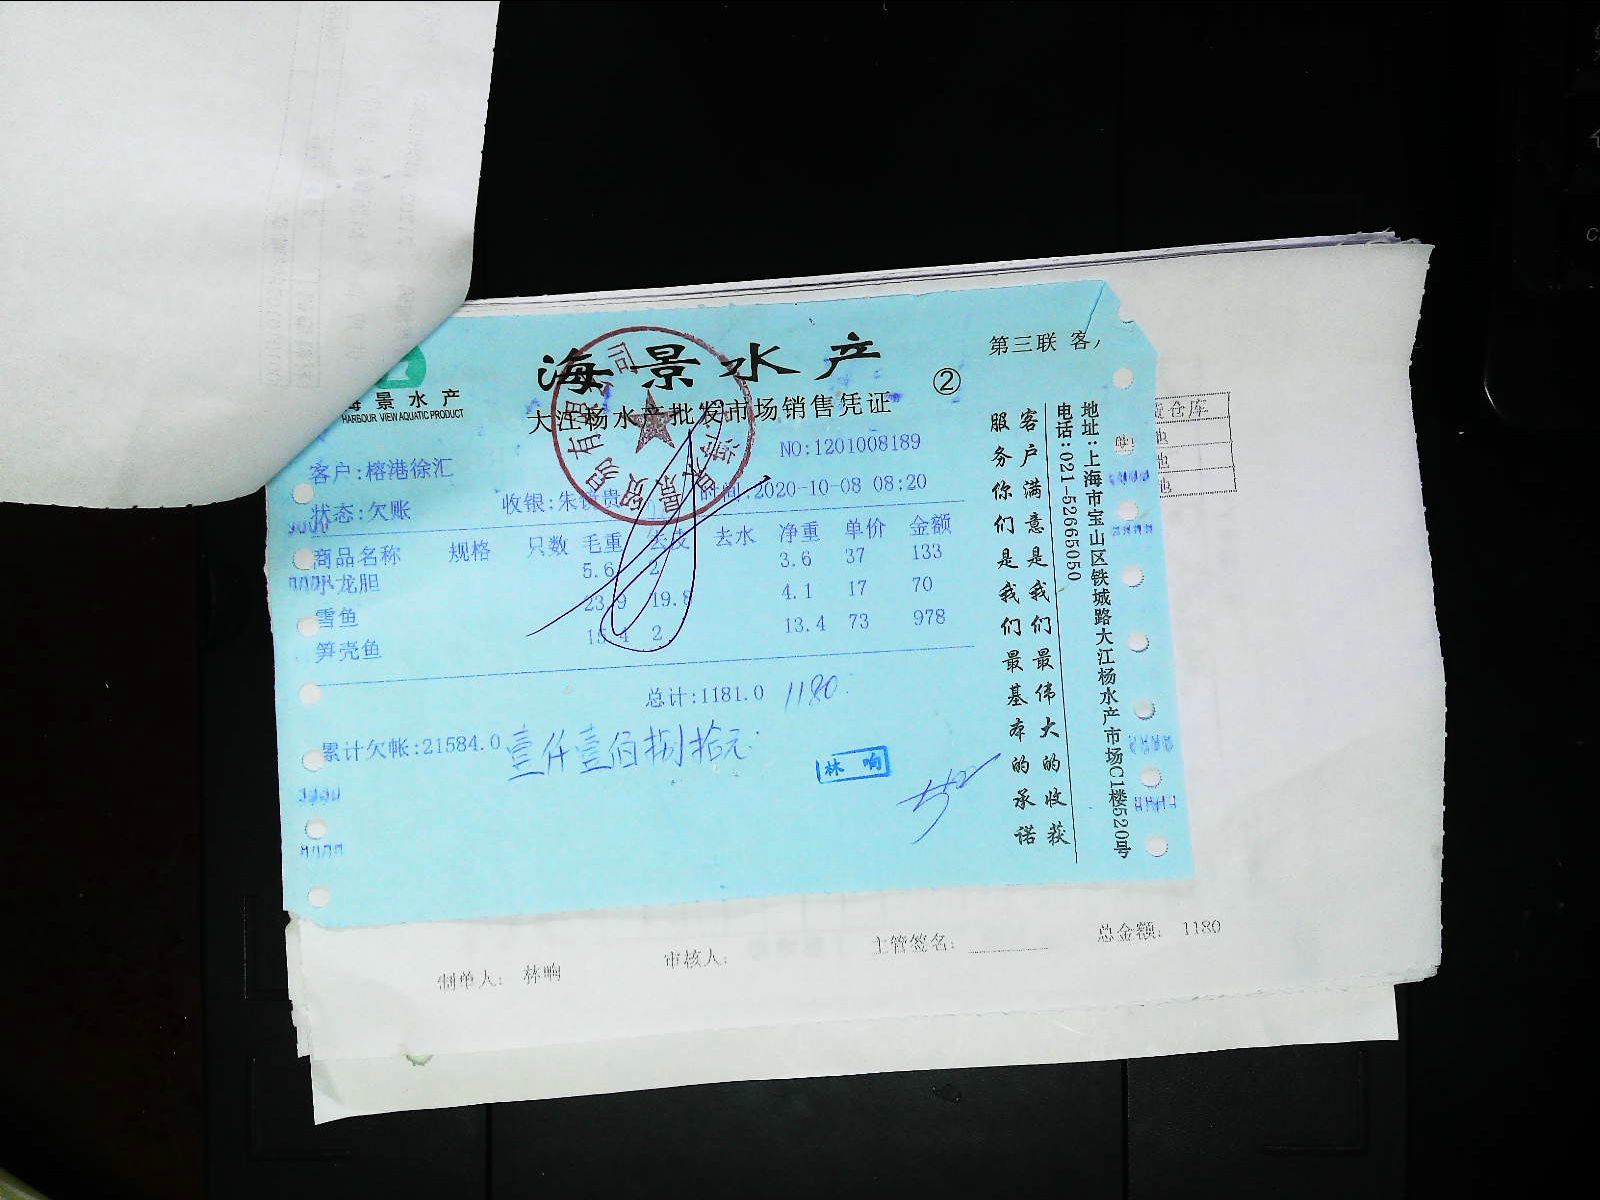 海景水产
HARBOUR VIEW AQUATIC PRODUCT
海景水产
大江杨水产批发市场销售凭证
②
第三联 客
NO:1201008189
客户:榕港徐汇
状态:欠账
收银:朱 贵
时间:2020-10-08 08:20
商品名称 规格 只数 毛重 去皮 去水 净重 单价 金额
水龙胆 5.6 2 3.6 37 133
雪鱼 23.9 19.8 4.1 17 70
笋壳鱼 15.4 2 13.4 73 978
总计:1181.0 1180
累计欠帐:21584.0 壹仟壹佰捌拾元
林 响
客户满意是我们最伟大的收获
服务你们是我们最基本的承诺
地址:上海市宝山区铁城路大江杨水产市场C1楼520号
电话:021-52665050
仓库
地
地
地
制单人: 林响
审核人:
主管签名:
总金额: 1180